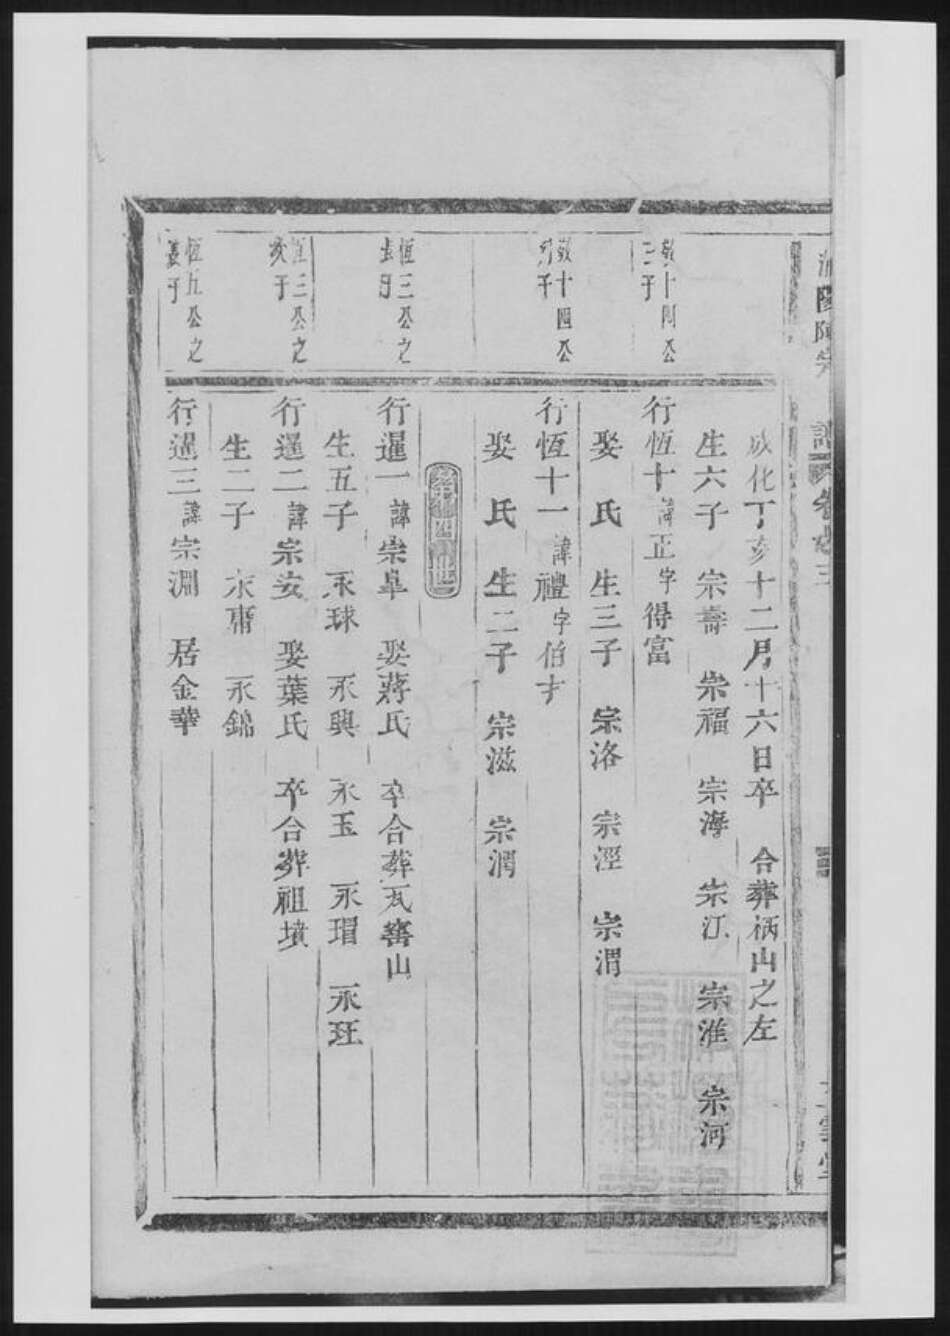 成化丁亥十二月十六日卒 合葬柄山之左
生六子 宗壽 崇福 宗海 宗江 宗淮 宗河
敬十四公
三子
行恆十諱正字得富
娶 氏 生三子 宗洛 宗涇 宗渭
敬十四公
行恆十一諱禮字伯才
娶 氏 生二子 宗滋 宗潤
恆三公之
長子
行暹一諱崇阜 娶蔣氏 卒合葬瓦窰山
生五子 永球 永興 永玉 永瑁 永玨
恆三公之
次子
行暹二諱宗安 娶葉氏 卒合葬祖墳
生二子 永鏞 永錦
恆五公之
長子
行暹三諱宗淵 居金華